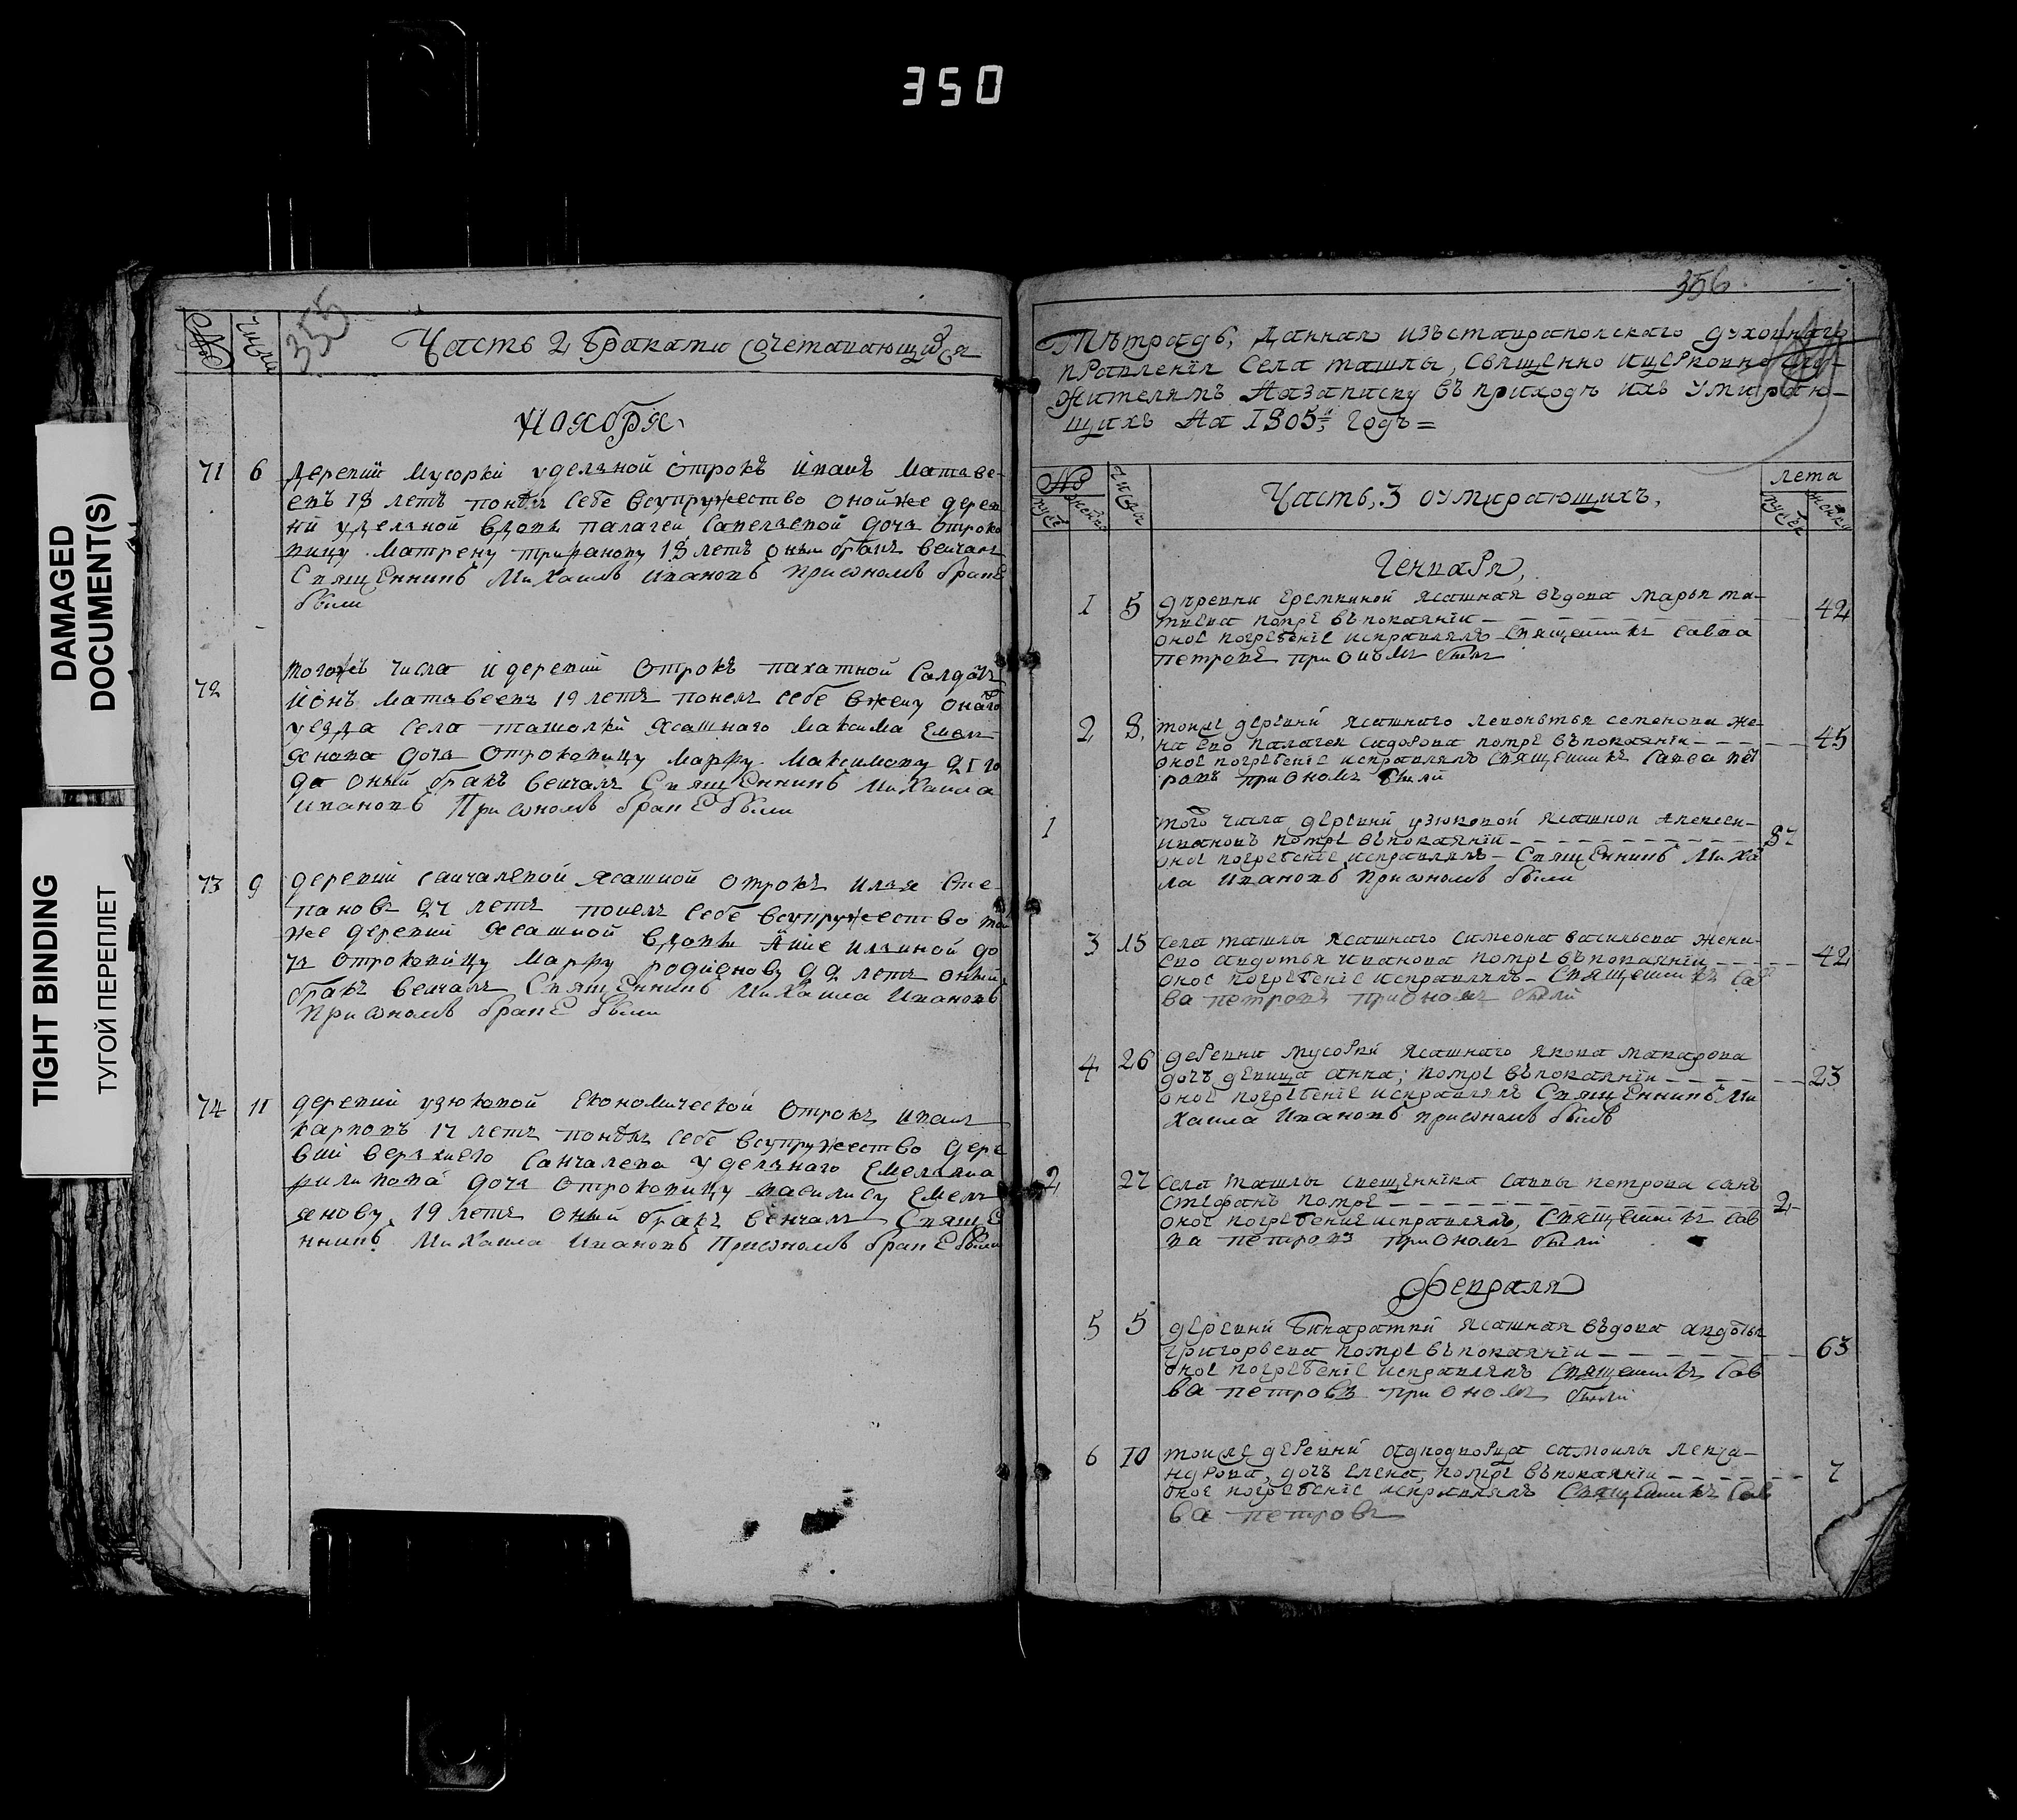 350
DAMAGED
DOCUMENT(S)
TIGHT BINDING
ТУГОЙ ПЕРЕПЛЕТ
355
№ числы
Часть 2 Браками сочетавающихся
Ноября
71 6 деревни Мусорки удельной отрокъ Иванъ Матьве-
евъ 18 летъ понялъ себе всупружество оной же дерев
ни удельной вдовы палагеи Савельевой дочь отроко
вицу Матрену трифанову 18 летъ оный бракъ венчалъ
Священникъ Михаилъ Ивановъ при ономъ браке
были
72 того жъ числа и деревни отрокъ пахатной Салдатъ
Ионъ Матьвеевъ 19 летъ понелъ себе вжену онаго
уезда села ташолки Ясашнаго Максима Емель
янова дочь отроковицу Марфу Максимову 21 го
да оный бракъ венчалъ Священникъ Михаила
Ивановъ При ономъ браке были
73 9 деревни санчалеевой Ясашной отрокъ Илья Сте-
пановъ 27 летъ понелъ себе всупружество той
же деревни Ясашной вдовы Анне Ильиной до
чь отроковицу Марфу родионову 22 летъ оный
бракъ венчалъ Священникъ Михаила Ивановъ
При ономъ браке были
74 11 деревни узюковой Економической отрокъ Иванъ
карповъ 17 летъ понялъ себе всупружество дере
вни верхняго Санчалеева удельнаго Емельяна
филипова дочь отроковицу василису Емель
янову 19 летъ оный бракъ венчалъ Свяще
нникъ Михаила Ивановъ При ономъ браке были
356
Тѣтрадь, Данная изъ ставрапольскаго духовнаго
правленія Села ташлы, священно ицерковно слу-
жителямъ На записку въ приходѣ ихъ умираю-
щихъ На 1805й годъ =
№ мужескъ женскъ Числы
Часть, 3 оумирающихъ,
лета мужеск женску
Генваря,
1 5 дѣревни еремкиной ясашная въдова марья ма-
твеева помре въ покаяніи — 42
оное погребеніе исправлялъ Священникъ Савва
петровъ при ономъ былъ
2 8, тоиже деревни ясашнаго леоньтья семенова же-
на ево палагея сидорова помре въ покаяніи — 45
оное погребеніе исправлялъ Священникъ Савва пет
ровъ при ономъ были
1 того числа деревни узюковой ясашной Алексеи
ивановъ помре въ покаяніи —
оное погребеніе исправлялъ — Священникъ Миха
ла Ивановъ При ономъ были
3 15 села ташлы ясашнаго симеона васильева жена
ево авдотья иванова помре въ покаяніи — 42
оное погребеніе исправлялъ — Священникъ Сав
ва петровъ при ономъ были
4 26 деревни мусорки ясашнаго якова макарова
дочъ девица анна; помре въ покаяніи — 23
оное погребеніе исправлялъ Священникъ Ми
хаила Ивановъ При ономъ былъ
2 27 села ташлы свещенника саввы петрова сынъ
стефанъ помре — 2
оное погребение исправлялъ, Священникъ Сав
ва петровъ при ономъ были
Февраля
5 5 деревни Бинаратки ясашная въдова авдотья
григорьева помре въ покаяніи — 63
оное погребеніе исправлялъ Священникъ Сав
ва петровъ при ономъ были
6 10 тоиже деревни аднодворца самоилы
дочъ елена, помре въ покаяніи — 7
оное погребеніе исправлялъ Священникъ Сав
ва петровъ